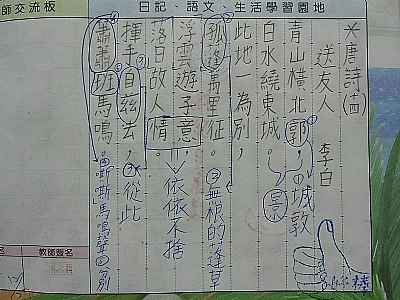 師交流板
日記、語文、生活學習園地
※唐詩(四)
送友人 李白
青山橫北郭,①城敦
白水繞東城。景
此地一為別,
孤蓬萬里征。②無根的蓬草
浮雲遊子意,
落日故人情。依依不捨
揮手自茲去,③從此
蕭蕭班馬鳴。
教師簽名